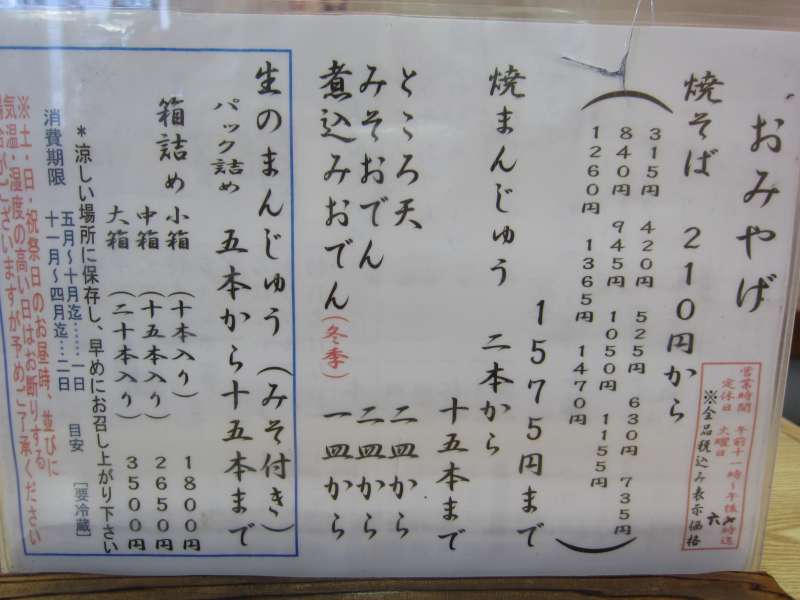 おみやげ
営業時間 午前十一時〜午後六時迄
定休日 火曜日
※全品税込み表示価格
焼そば 210円から
(315円 420円 525円 630円 735円
840円 945円 1050円 1155円
1260円 1365円 1470円)
1575円まで
焼まんじゅう 二本から
十五本まで
ところ天 二皿から
みそおでん 二皿から
煮込みおでん(冬季) 一皿から
生のまんじゅう(みそ付き)
パック詰め 五本から十五本まで
箱詰め 小箱 (十本入り) 1800円
中箱 (十五本入り) 2650円
大箱 (二十本入り) 3500円
*涼しい場所に保存し、早めにお召し上がり下さい
消費期限 五月〜十月迄……一日 目安 [要冷蔵]
十一月〜四月迄…二日
※土・日・祝祭日のお昼時、並びに
気温・湿度の高い日はお断りする
場合がございますが予めご了承ください